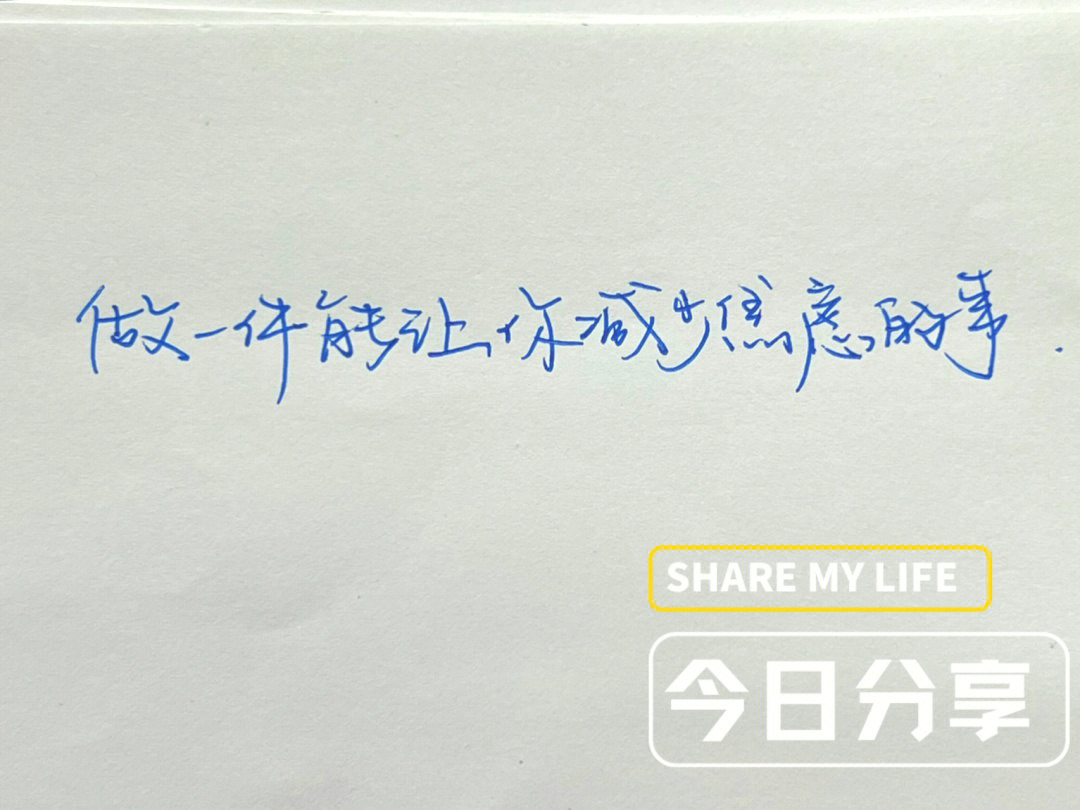 做一件能让你减少焦虑的事.
SHARE MY LIFE
今日分享